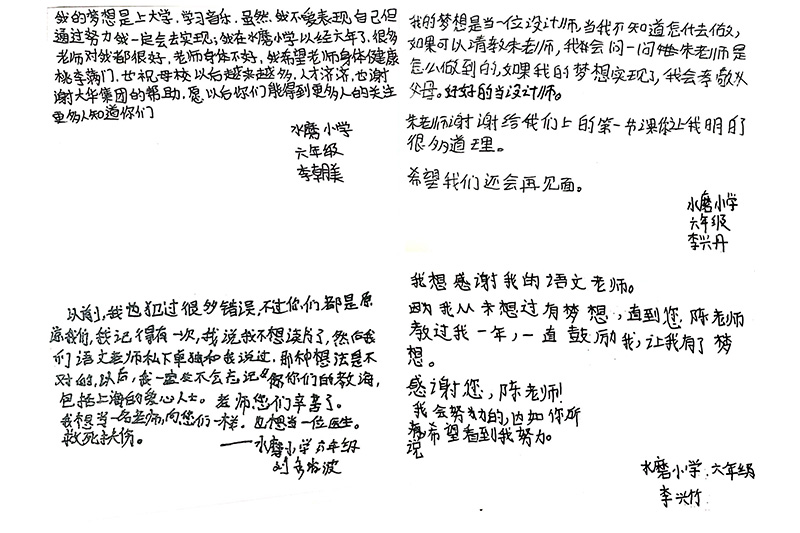 我的梦想是上大学，学习音乐，虽然，我不爱表现自己但
通过努力我一定会去实现；我在水磨小学以经六年了，很多
老师对我都很好，老师身体不好，我希望老师身体健康
桃李满门，也祝母校以后越来越多，人才济济，也谢
谢大华集团的帮助，愿以后你们能得到更多人的关注
更多人知道你们
水磨小学
六年级
李朝美
我的梦想是当一位设计师，当我不知道怎什去做，
如果可以请教朱老师，我会问一问朱老师是
怎么做到的，如果我的梦想实现了，我会孝敬父
父母。好好的当设计师。
朱老师谢谢给我们上的第一书课你让我明白了
很多道理。
希望我们还会再见面。
水磨小学
六年级
李兴丹
以前，我也犯过很多错误，不过你们都是原
谅我们，我记得有一次，我说我不想读书了，然后我
们语文老师私下单独和我说过，那种想法是不
对的，以后，我一定不会忘记你们的教诲，
包括上海的爱心人士。老师您们辛苦了。
我想当一名老师，向您们一样。也想当一位医生。
救死扶伤。
——水磨小学六年级
刘 波
我想感谢我的语文老师。
因为我从未想过有梦想，直到您，陈老师
教过我一年，一直鼓励我，让我有了梦
想。
感谢您，陈老师！
我会努力的，因如你所
希望看到我努力。
说
水磨小学，六年级
李兴竹